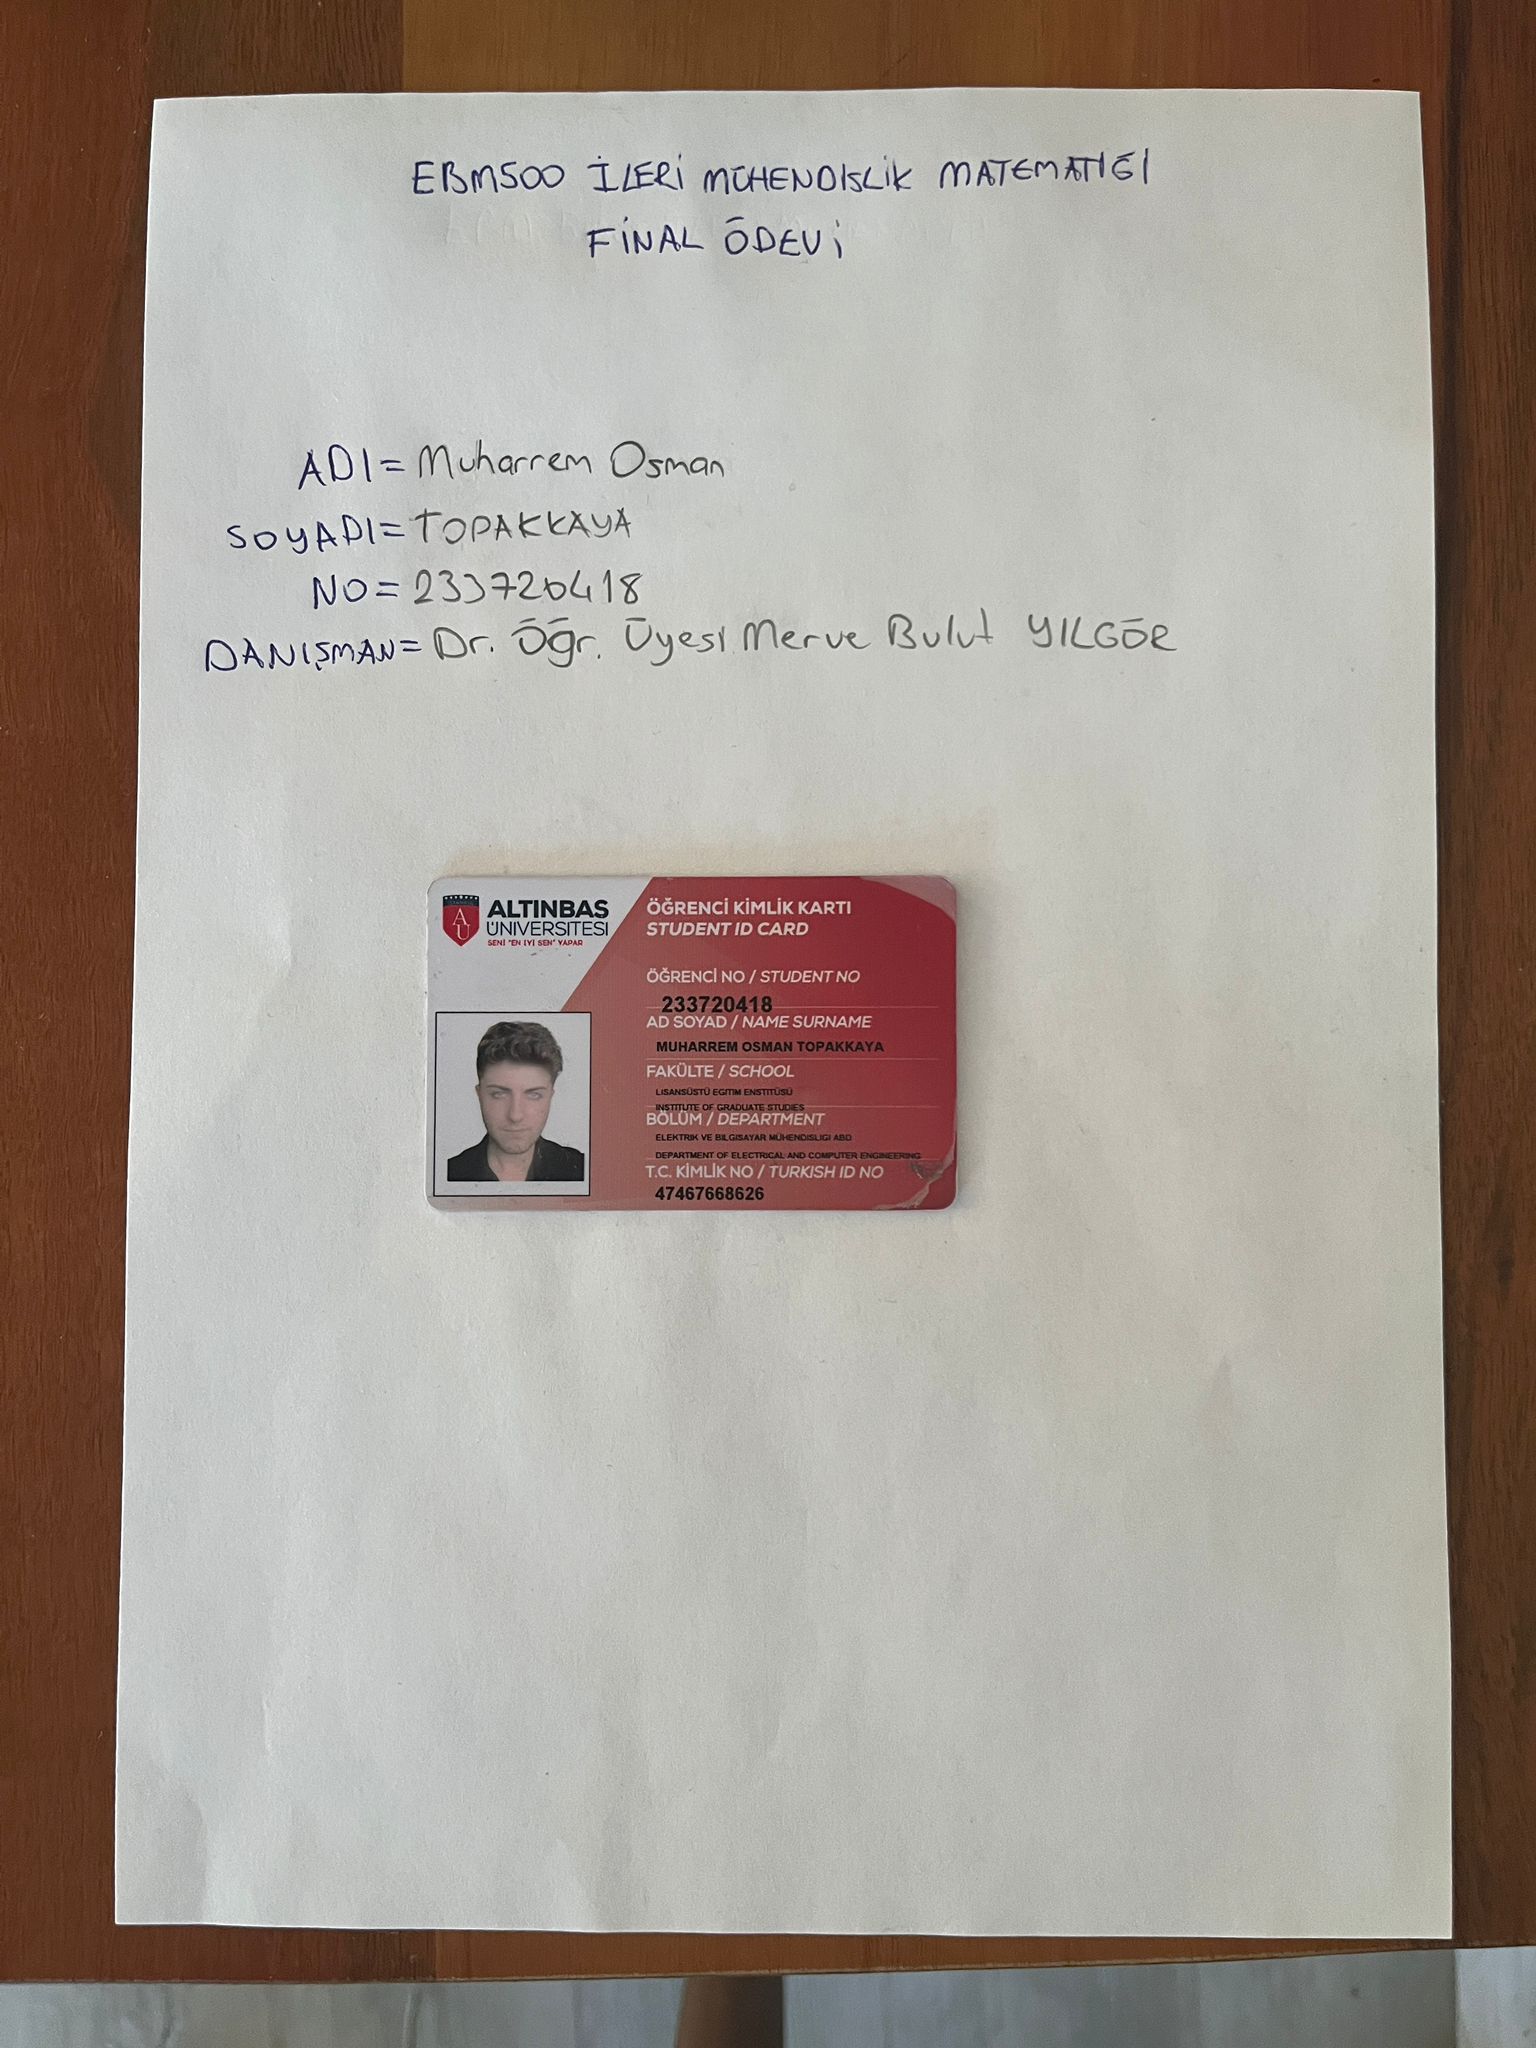 EBM500 İLERİ MÜHENDİSLİK MATEMATİĞİ
FİNAL ÖDEVİ
ADI= Muharrem Osman
SOYADI= TOPAKKAYA
NO= 233720418
DANIŞMAN= Dr. Öğr. Üyesi Merve Bulut YILGÖR
ALTINBAŞ
ÜNİVERSİTESİ
SENİ "EN İYİ SEN" YAPAR
AU
ÖĞRENCİ KİMLİK KARTI
STUDENT ID CARD
ÖĞRENCİ NO / STUDENT NO
233720418
AD SOYAD / NAME SURNAME
MUHARREM OSMAN TOPAKKAYA
FAKÜLTE / SCHOOL
LISANSÜSTÜ EGITIM ENSTITÜSÜ
INSTITUTE OF GRADUATE STUDIES
BÖLÜM / DEPARTMENT
ELEKTRIK VE BILGISAYAR MÜHENDISLIGI ABD
DEPARTMENT OF ELECTRICAL AND COMPUTER ENGINEERING
T.C. KİMLİK NO / TURKISH ID NO
47467668626